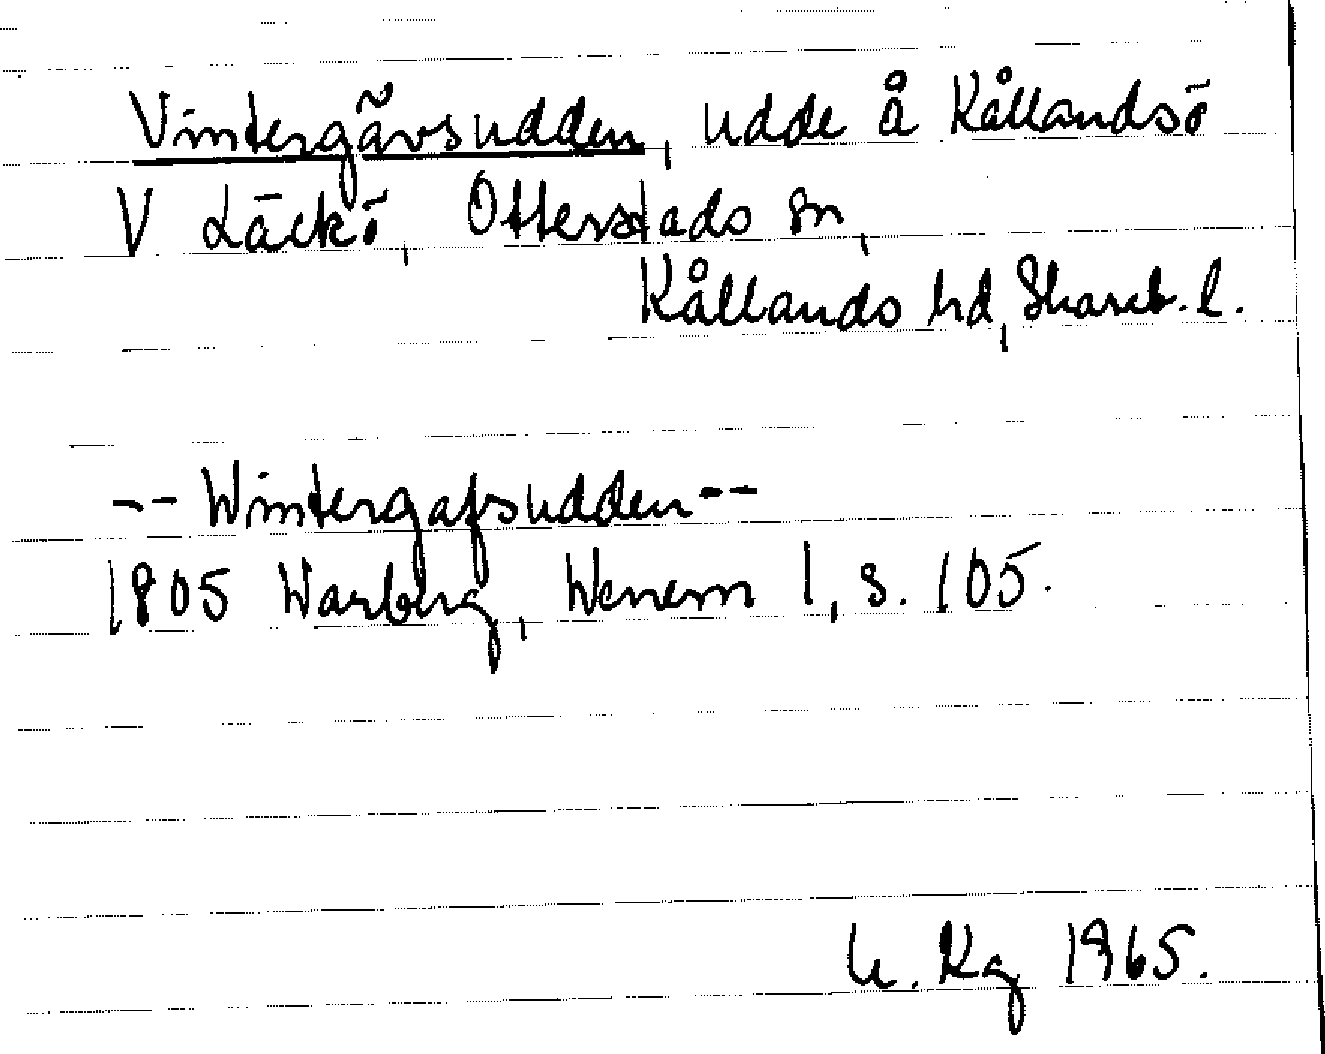 Vintergãvsudden, udde å Kållandsö
V Läckö, Otterstads sn,
Kållands hd, Skarab. l.
-- Wintergafsudden --
1805 Warberg, Wenern I, s. 105.
U. Kg 1965.